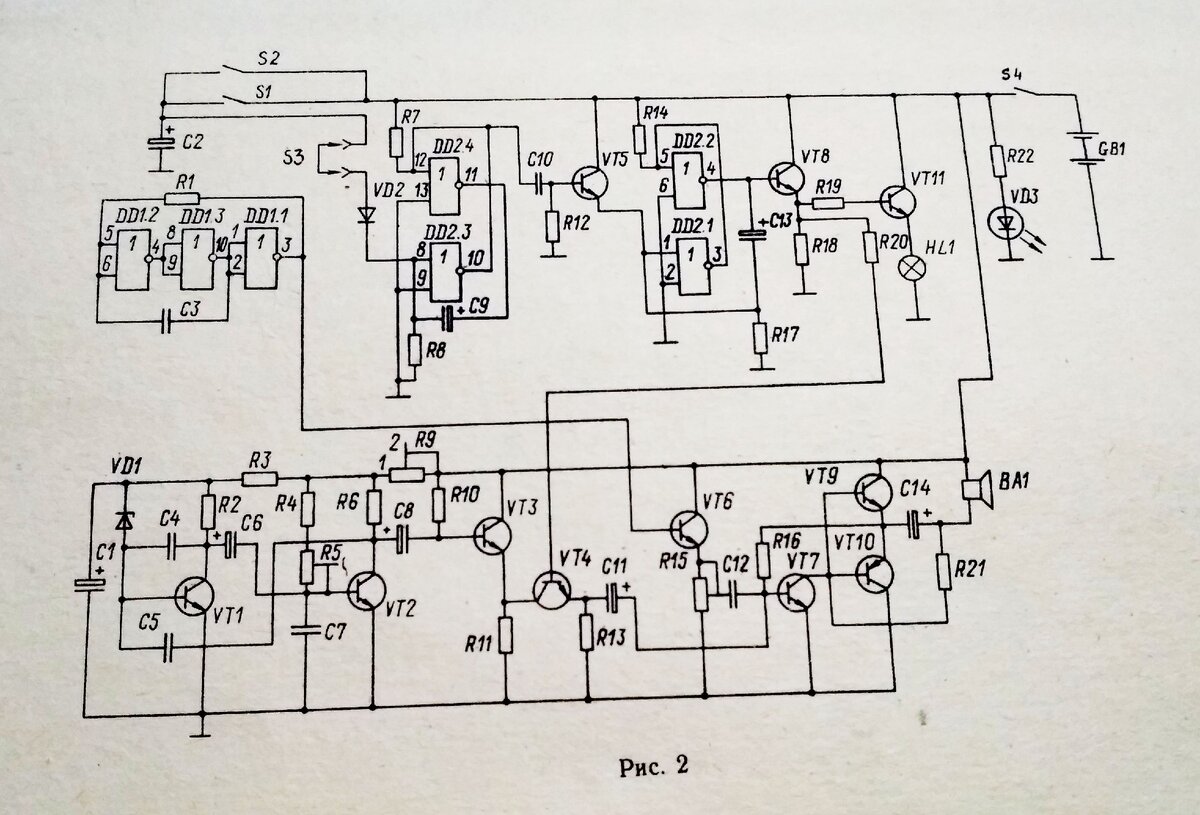 S2
S1
S4
C2
+
S3
R7
DD2.4
12
1
11
13
VD2
C10
VT5
R14
DD2.2
5
1
4
6
VT8
R19
VT11
R22
GB1
VD3
R1
DD1.2
DD1.3
DD1.1
5
1
4
6
8
1
10
9
1
1
3
2
DD2.3
8
1
10
9
+
C9
R8
R12
DD2.1
1
1
3
2
+
C13
R18
R20
HL1
R17
C3
VD1
R3
2
R9
1
R2
R4
R6
R10
VT3
VT6
VT9
C14
+
BA1
C4
+
C6
+
C8
C1
+
R5
VT4
C11
+
R15
C12
R16
VT7
VT10
R21
VT1
VT2
C5
C7
R11
R13
Рис. 2